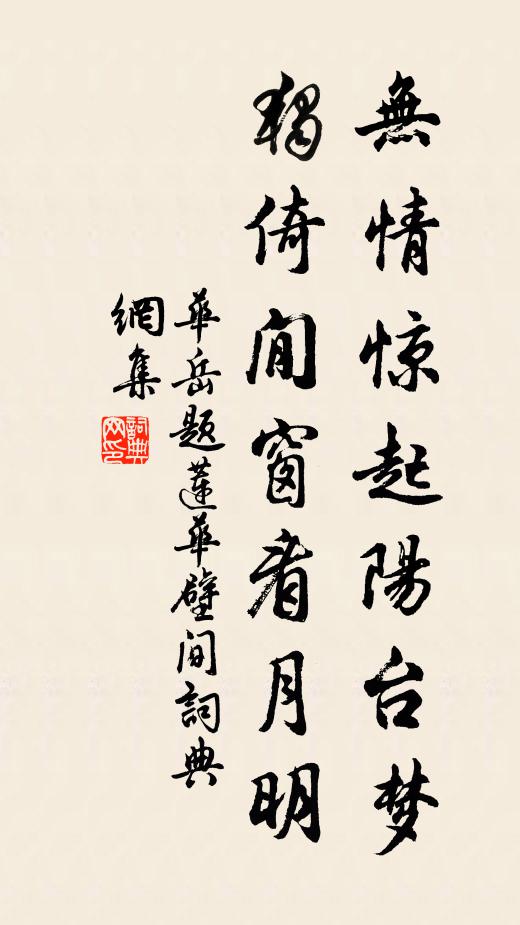 無情惊起陽台梦
独倚间窗看月明
華岳题蓮華壁间詞典
網集
詞典网印